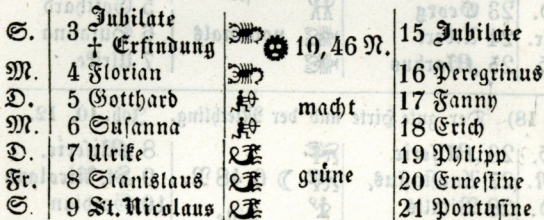 S. 3 Jubilate † Erfindung 10,46 N. 15 Jubilate
M. 4 Florian 16 Peregrinus
D. 5 Gotthard macht 17 Fanny
M. 6 Susanna 18 Erich
D. 7 Ulrike 19 Philipp
Fr. 8 Stanislaus grüne 20 Ernestine
S. 9 St. Nicolaus 21 Pontusine